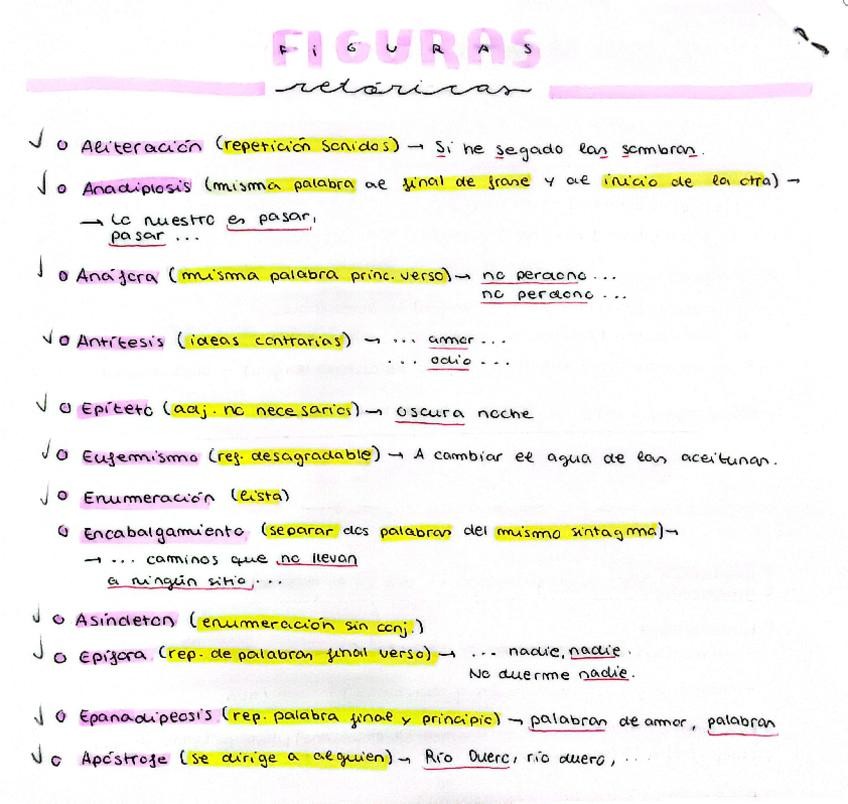 FIGURAS
retóricas
Aliteración (repetición sonidos) → Si he segado las sombras.
Anadiplosis (misma palabra al final de frase y al inicio de la otra) →
→ Lo nuestro es pasar,
pasar ...
Anáfora (misma palabra princ. verso) → no perdono ...
no perdono ...
Antítesis (ideas contrarias) → ... amor ...
... odio ...
Epíteto (adj. no necesarios) → oscura noche
Eufemismo (ref. desagradable) → A cambiar el agua de las aceitunas.
Enumeración (lista)
Encabalgamiento (separar dos palabras del mismo sintagma) →
→ ... caminos que no llevan
a ningún sitio, ...
Asíndeton (enumeración sin conj.)
Epífora (rep. de palabras final verso) → ... nadie, nadie.
No duerme nadie.
Epanadiplosis (rep. palabra final y principio) → palabras de amor, palabras
Apóstrofe (se dirige a alguien) → Río Duero, río duero, ...